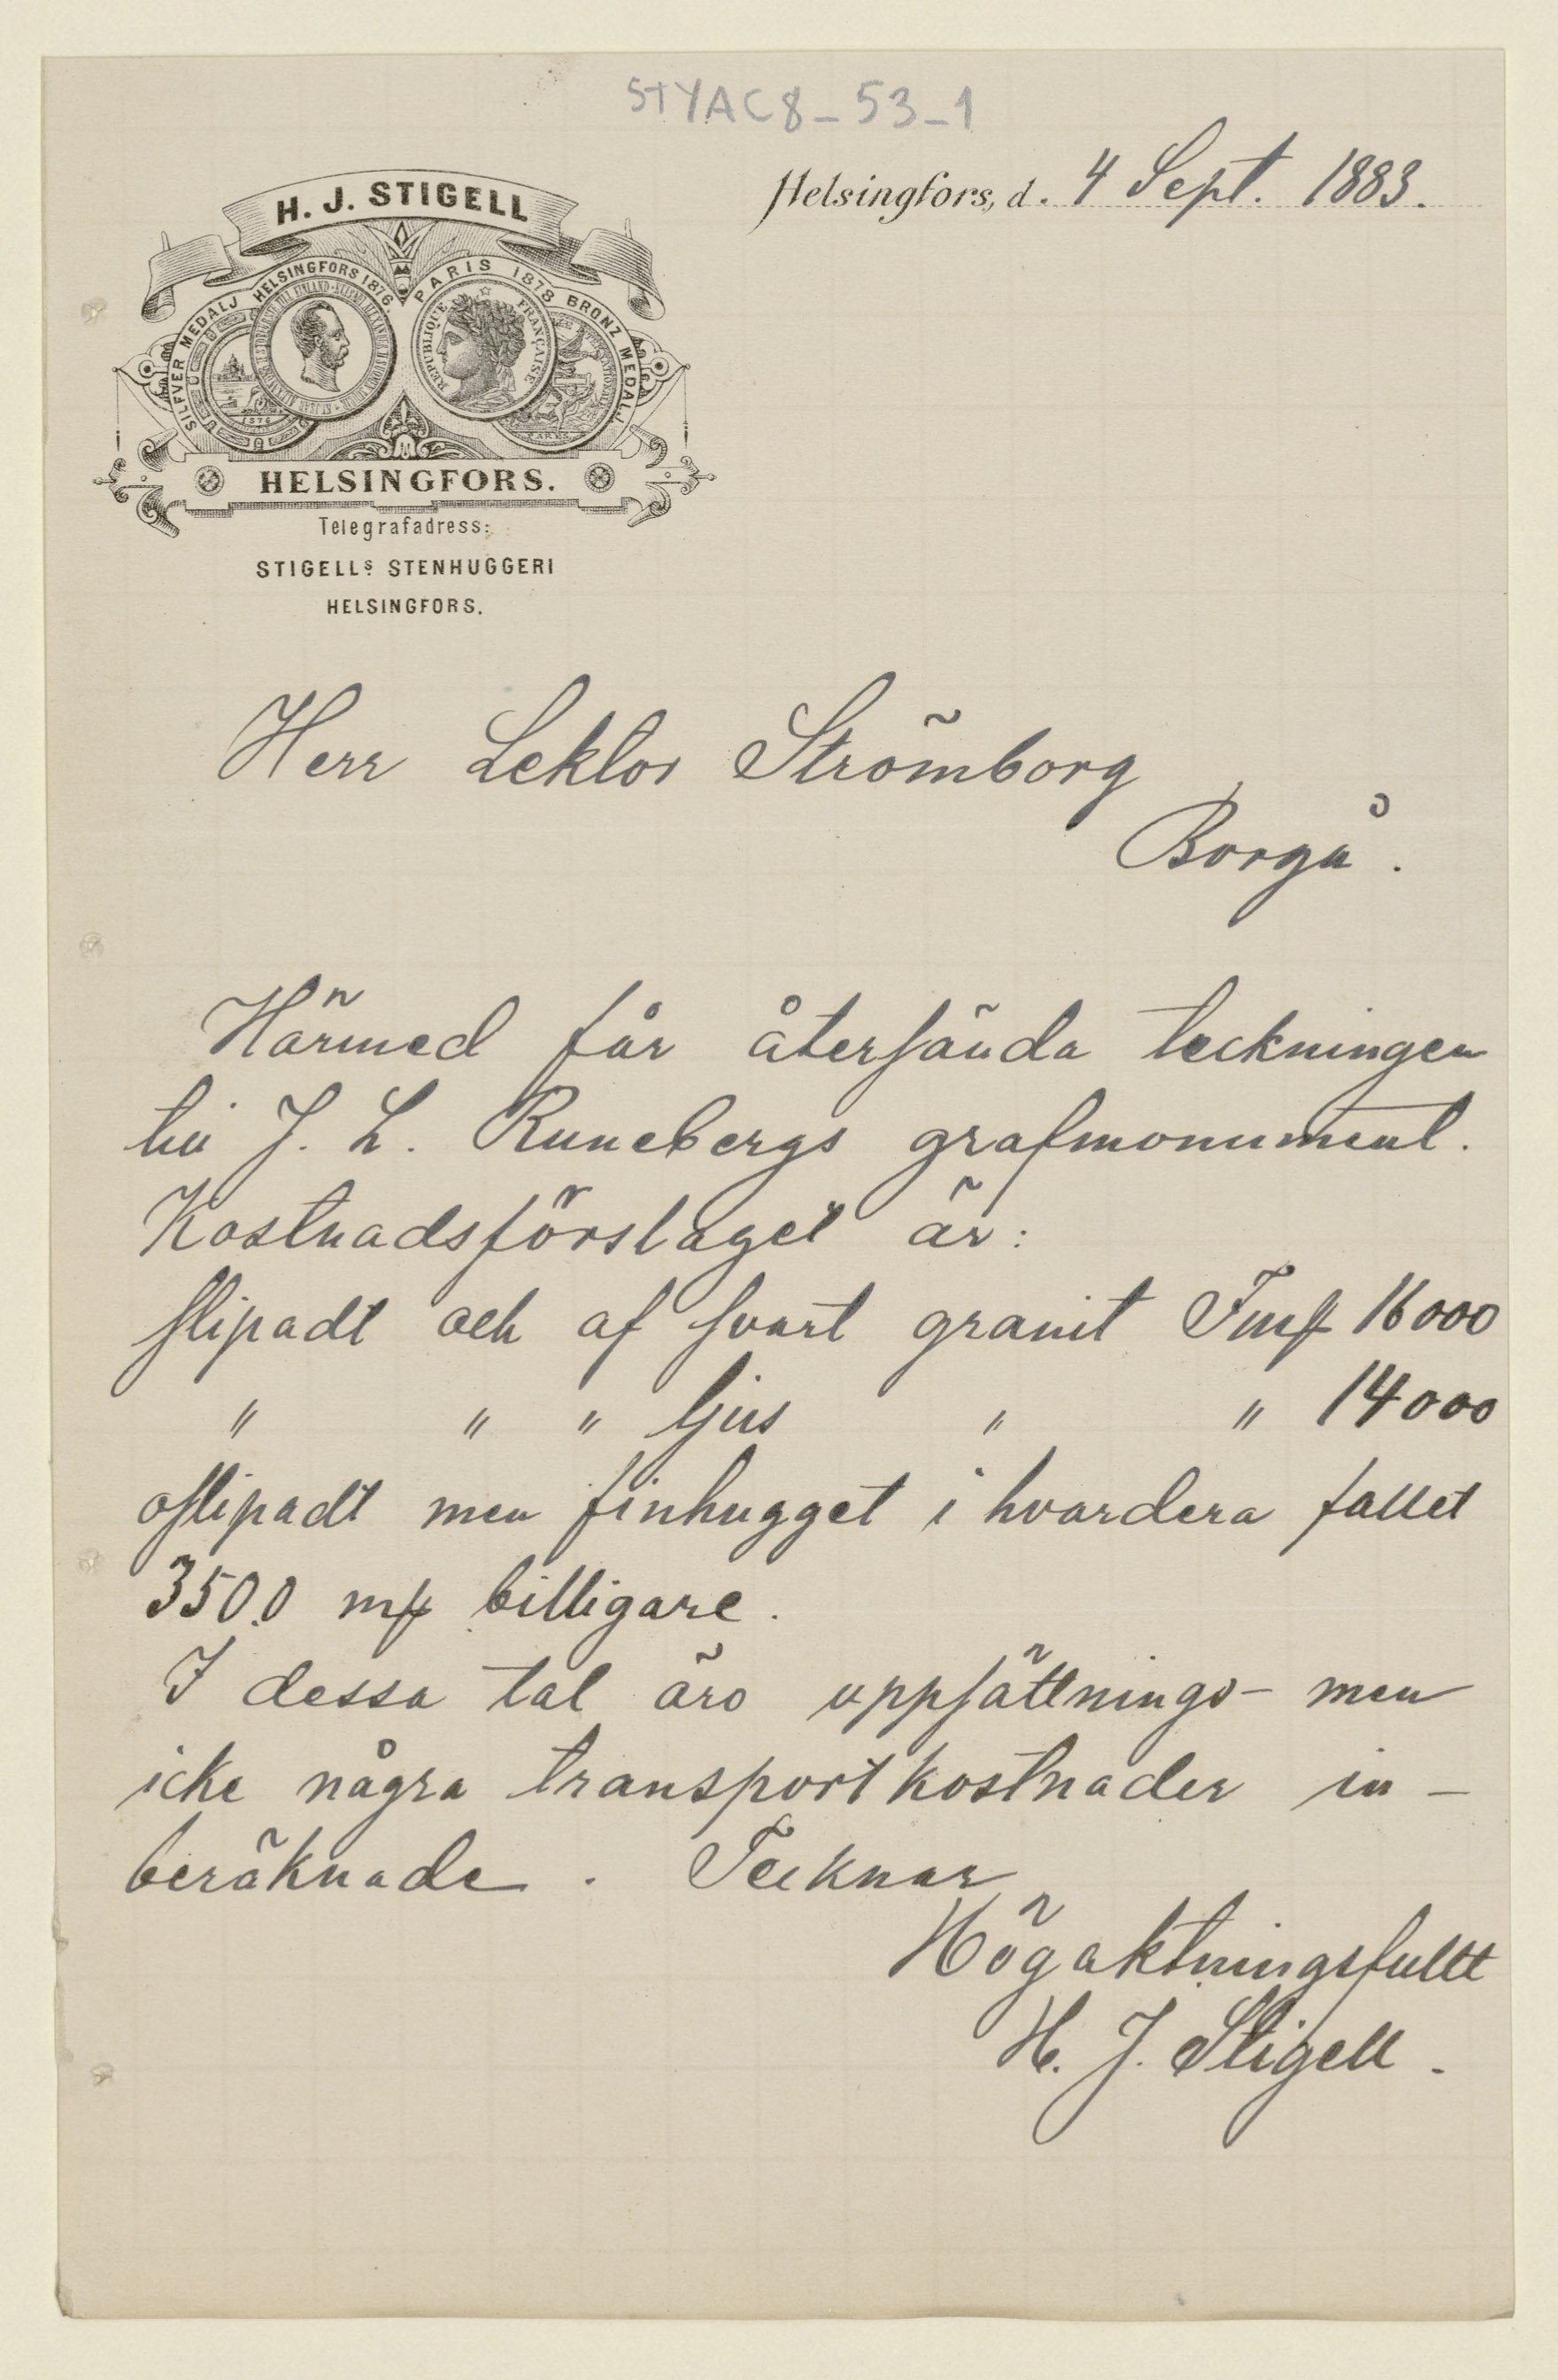 STYAC8_53_1
Helsingfors, d. 4 Sept. 1883.
H. J. STIGELL
SILFVER MEDALJ HELSINGFORS 1876.
PARIS 1878 BRONZ MEDALJ
RÉPUBLIQUE FRANÇAISE
1876
HELSINGFORS.
Telegrafadress:
STIGELLS STENHUGGERI
HELSINGFORS.
Herr Lektor Strömborg
Borgå.
Härmed får återsända teckningen
till J. L. Runebergs grafmonument.
Kostnadsförslaget är:
slipadt och af svart granit Fmk 16000
" " " ljus " " 14000
oslipadt men finhugget i hvardera fallet
3500 mk billigare.
I dessa tal äro uppsättnings- men
icke några transportkostnader in-
beräknade. Tecknar
Högaktningsfullt
H. J. Stigell.